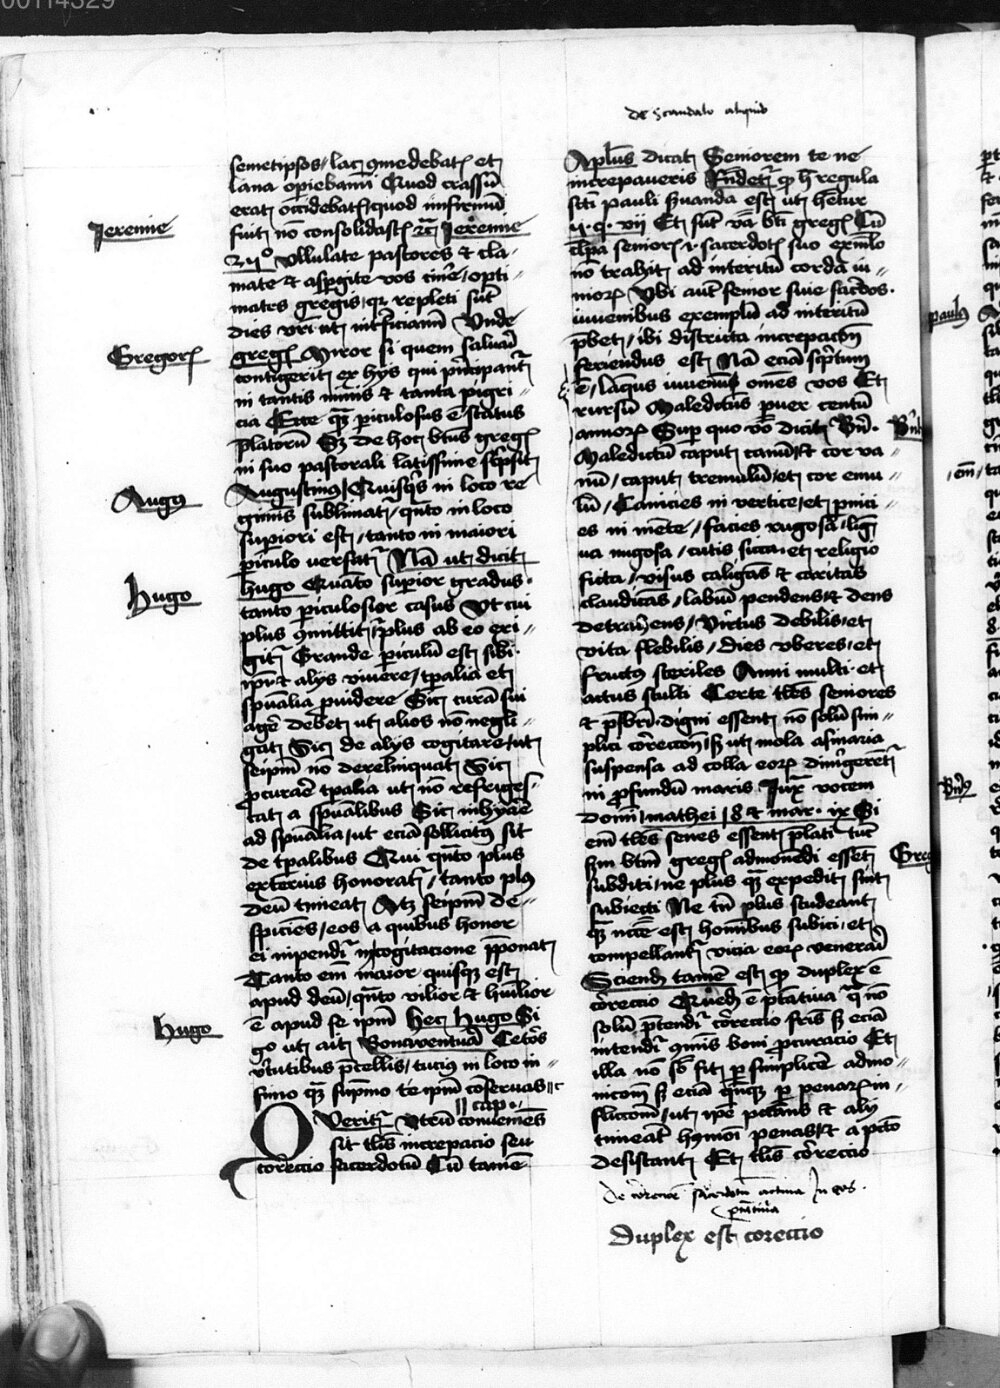 00114329
de scandalo aliquid
semetipsos / lac comedebat et
lana operiebamini Quod crassum
erat occidebatis quod infirmum
fuit non consolidastis etc Jeremie
Jeremie
Ululate pastores et cla-
mate et aspergite vos cinere / opti-
mates gregis quia repleti sunt
dies vestri ut interficiamini Unde
Gregorius
gregorius Miror si quem salvari
contigerit ex hys qui principantur
in tantis nimis et tanta pigri-
cia Ecce quam periculosus est status
prelatorum Sed de hoc beatus gregorius
in suo pastorali latissime scripsit
Augus
Augustinus Quisquis in loco re
giminis sublimatur / quanto in loco
superiori est / tanto in maiori
periculo versatur Nam ut dicit
Hugo
hugo Quanto superior gradus
tanto periculosior casus Ut cui
plus committitur / plus ab eo exi-
gitur Grande periculum est sibi
ipsi et alys vivere / temporalia et
spiritualia providere Sic curam sui
agere debet ut alios non negli-
gat Sic de alys cogitare / ut
seipsum non derelinquat Sic
procurare temporalia ut non refriges-
cat a spiritualibus Sic inhyare
ad spiritualia / ut eciam sollicitus sit
de temporalibus Qui quanto plus
exterius honoratur / tanto plus
deum timeat Atque seipsum de-
spiciens / eos a quibus honor
ei inpenditur in cogitacione preponat
Tanto enim maior quisque est
apud deum / quanto vilior et humilior
est apud se ipsum hec Hugo Si
Hugo
go ut ait Bonaventura Ceteros
virtutibus precellis / tucius in loco in-
fimo quam supremo te ipsum conservas
cap.
Queritur Utrum conveniens
sit talis increpacio seu
correccio sacerdotum Cum tamen
Apostolus dicat Seniorem te ne
increpaveris Respondetur quod hec regula
sancti pauli servanda est ut habetur
ii. q. vii Et sunt verba beati gregorii Cum
culpa senioris i. sacerdotis suo exemplo
non trahit ad interitum corda iu-
niorum Ubi autem senior sive sacerdos
iuvenibus exemplum ad interitum
prebet / ibi districta increpacione
feriendus est Nam eciam scriptum
est / laqueus iuvenum omnes vos Et
rursum Maledictus puer centum
annorum Super quo vero dicit Ber.
Maledictum caput canum et cor va-
num / caput tremulum et cor emu-
lum / Canicies in vertice et pernici-
es in mente / facies rugosa / lig
ua nugosa / cutis sicca et religio
ficta / visus caligans et caritas
claudicans / labium pendens et dens
detrahens / Virtus debilis et
vita flebilis / dies uberes et
fructus steriles Anni multi et
actus stulti Certe tales seniores
et presbiteri digni essent non solum sim-
plici correccioni sed ut mola asinaria
suspensa ad colla eorum dimergerentur
in profundum maris Juxta vocem
domini mathei 18 et mar. ix Si
enim tales senes essent prelati tunc
secundum beatum gregorium admonendi essent
subditi / ne plus quam expedit sint
subiecti Ne cum plus studeant
quam necesse est hominibus subici / et
compellantur vicia eorum venerari
Sciendum tamen est quod duplex est
correccio Quedam est preceptativa que non
solum pretendit correccio fratris sed eciam
intenditur communis boni procuracio Et
illa non solum fit per simplicem admo-
nicionem sed eciam quandoque per penarum in-
flictionem / ut ipse peccans et aly
timeant huiusmodi penas et a peccato
desistant Et talis correccio
Duplex est coreccio